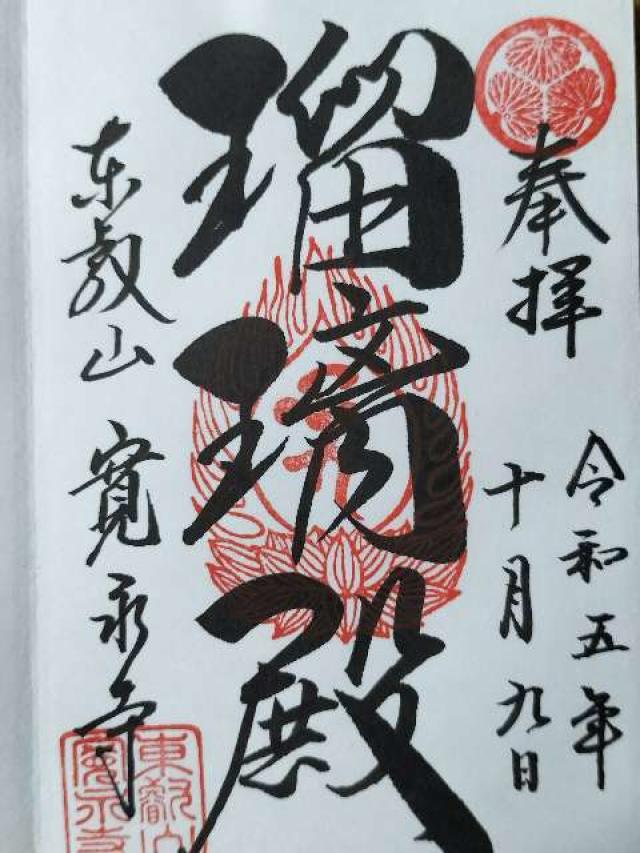 奉拝
令和五年
十月九日
瑠璃殿
东叡山 寛永寺
東叡山
寛永寺